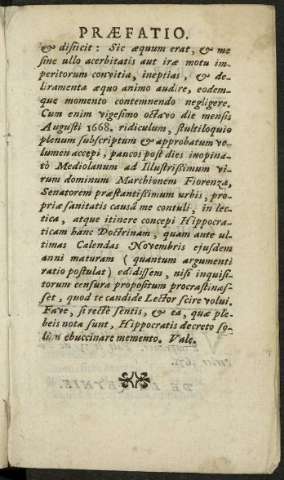 PRÆFATIO.
& disiicit: Sic æquum erat, & me
sine ullo acerbitatis aut iræ motu im-
peritorum convitia, ineptias, & de-
liramenta æquo animo audire, eodem-
que momento contemnendo negligere.
Cum enim vigesimo octavo die mensis
Augusti 1668, ridiculum, stultiloquio
plenum subscriptum & approbatum vo-
lumen accepi, paucos post dies inopina-
tò Mediolanum ad Illustrissimum vi-
rum dominum Marchionem Fiorenza,
Senatorem præstantissimum urbis, pro-
priæ sanitatis causâ me contuli, in lec-
tica, atque itinere concepi Hippocra-
ticam hanc Doctrinam, quam ante ul-
timas Calendas Novembris ejusdem
anni maturam (quantum argumenti
ratio postulat) edidissem, nisi inquisi-
torum censura propositum procrastinas-
set, quod te candide Lector scire volui.
Fave, si rectè sentis, & ea, quæ ple-
beis nota sunt, Hippocratis decreto so-
lùm ebuccinare memento. Vale.